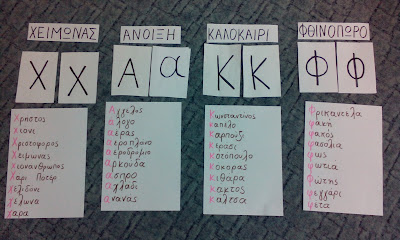 ΧΕΙΜΩΝΑΣ
Χ Χ
Χρηστος
Χιονι
Χριστοφορος
Χειμωνας
Χιονανθρωπος
Χαρι Ποτερ
Χελιδονι
Χελωνα
Χαρα
ΑΝΟΙΞΗ
Α α
Αγγελος
αλογο
αερας
αεροπλανο
αεροδρομιο
αρκουδα
ασπρο
αχλαδι
ανανας
ΚΑΛΟΚΑΙΡΙ
Κ Κ
Κωνσταντινος
καπελο
καρπουζι
κερασι
κοτοπουλο
κοκορας
κιθαρα
κακτος
καλτσα
ΦΘΙΝΟΠΩΡΟ
Φ Φ
Φρικαντελα
φακη
φακος
φασολια
φως
φωτια
Φωτης
φεγγαρι
φετα